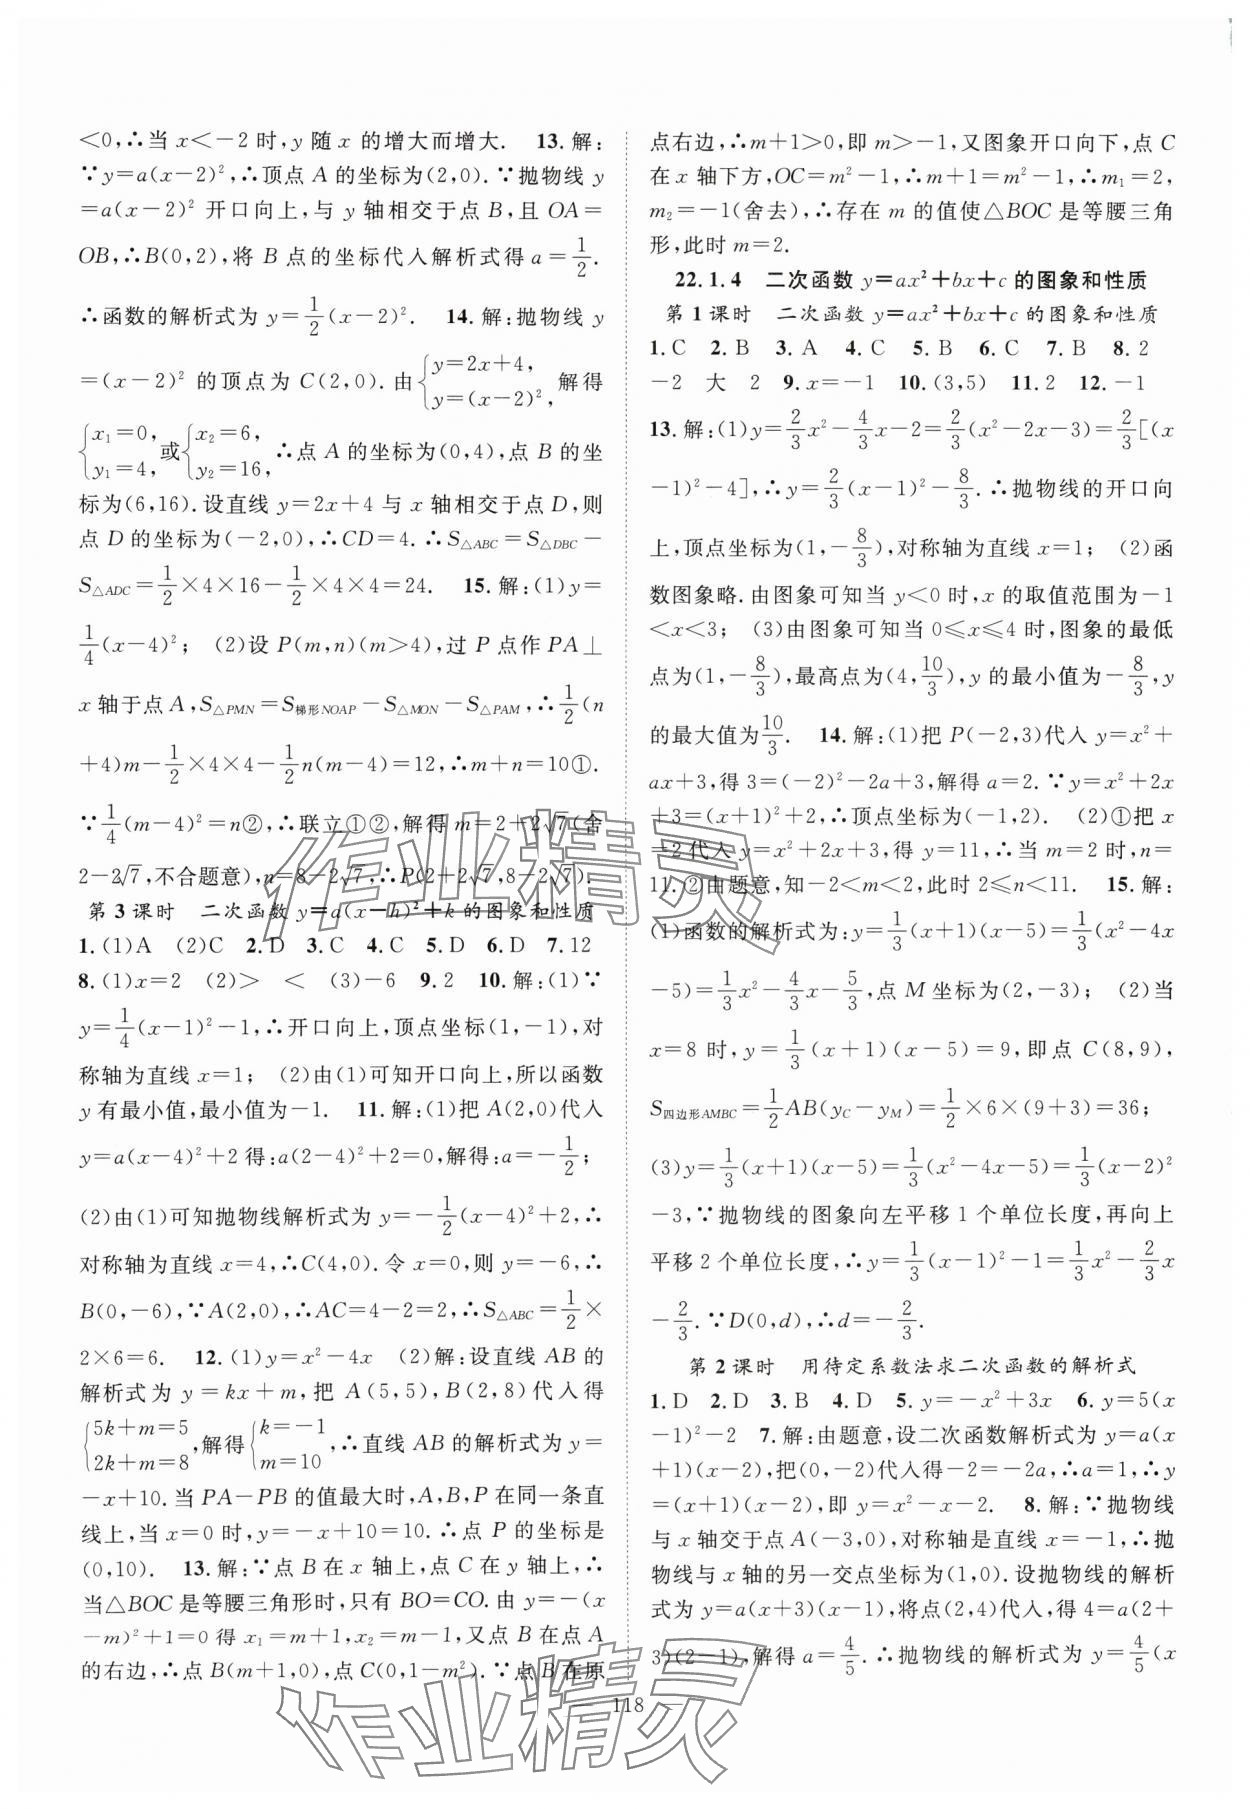 <0,∴当 x<-2 时,y 随 x 的增大而增大. 13.解:
∵y=a(x-2)²,∴顶点 A 的坐标为(2,0).∵抛物线 y
=a(x-2)² 开口向上,与 y 轴相交于点 B,且 OA=
OB,∴B(0,2),将 B 点的坐标代入解析式得 a=1/2.
∴函数的解析式为 y=1/2(x-2)². 14.解:抛物线 y
=(x-2)² 的顶点为 C(2,0).由{y=2x+4, y=(x-2)²,解得
{x₁=0, y₁=4,或{x₂=6, y₂=16,∴点 A 的坐标为(0,4),点 B 的坐
标为(6,16).设直线 y=2x+4 与 x 轴相交于点 D,则
点 D 的坐标为(-2,0),∴CD=4.∴S△ABC=S△DBC-
S△ADC=1/2×4×16-1/2×4×4=24. 15.解:(1)y=
1/4(x-4)²; (2)设 P(m,n)(m>4),过 P 点作 PA⊥
x 轴于点 A,S△PMN=S梯形NOAP-S△MON-S△PAM,∴1/2(n
+4)m-1/2×4×4-1/2n(m-4)=12,∴m+n=10①.
∵1/4(m-4)²=n②,∴联立①②,解得 m=2+2√7(舍
2-2√7,不合题意),n=8-2√7,∴P(2+2√7,8-2√7).
第 3 课时 二次函数 y=a(x-h)²+k 的图象和性质
1.(1)A (2)C 2.D 3.C 4.C 5.D 6.D 7.12
8.(1)x=2 (2)> < (3)-6 9.2 10.解:(1)∵
y=1/4(x-1)²-1,∴开口向上,顶点坐标(1,-1),对
称轴为直线 x=1; (2)由(1)可知开口向上,所以函数
y 有最小值,最小值为-1. 11.解:(1)把 A(2,0)代入
y=a(x-4)²+2 得:a(2-4)²+2=0,解得:a=-1/2;
(2)由(1)可知抛物线解析式为 y=-1/2(x-4)²+2,∴
对称轴为直线 x=4,∴C(4,0).令 x=0,则 y=-6,∴
B(0,-6),∵A(2,0),∴AC=4-2=2,∴S△ABC=1/2×
2×6=6. 12.(1)y=x²-4x (2)解:设直线 AB 的
解析式为 y=kx+m,把 A(5,5),B(2,8)代入得
{5k+m=5 2k+m=8,解得{k=-1 m=10,∴直线 AB 的解析式为 y=
-x+10.当 PA-PB 的值最大时,A,B,P 在同一条直
线上,当 x=0 时,y=-x+10=10.∴点 P 的坐标是
(0,10). 13.解:∵点 B 在 x 轴上,点 C 在 y 轴上,∴
当△BOC 是等腰三角形时,只有 BO=CO.由 -(x
-m)²+1=0 得 x₁=m+1,x₂=m-1,又点 B 在点 A
的右边,∴点 B(m+1,0),点 C(0,1-m²).∵点 B 在原
点右边,∴m+1>0,即 m>-1,又图象开口向下,点 C
在 x 轴下方,OC=m²-1,∴m+1=m²-1,∴m₁=2,
m₂=-1(舍去),∴存在 m 的值使△BOC 是等腰三角
形,此时 m=2.
22.1.4 二次函数 y=ax²+bx+c 的图象和性质
第 1 课时 二次函数 y=ax²+bx+c 的图象和性质
1.C 2.B 3.A 4.C 5.B 6.C 7.B 8.2
-2 大 2 9.x=-1 10.(3,5) 11.2 12.-1
13.解:(1)y=2/3x²-4/3x-2=2/3(x²-2x-3)=2/3[(x
-1)²-4],∴y=2/3(x-1)²-8/3.∴抛物线的开口向
上,顶点坐标为(1,-8/3),对称轴为直线 x=1; (2)函
数图象略.由图象可知当 y<0 时,x 的取值范围为-1
<x<3; (3)由图象可知当 0≤x≤4 时,图象的最低
点为(1,-8/3),最高点为(4,10/3),y 的最小值为-8/3,y
的最大值为10/3. 14.解:(1)把 P(-2,3)代入 y=x²+
ax+3,得 3=(-2)²-2a+3,解得 a=2.∵y=x²+2x
+3=(x+1)²+2,∴顶点坐标为(-1,2). (2)①把 x
=2代入 y=x²+2x+3,得 y=11,∴当 m=2 时,n=
11.②由题意,知-2<m<2,此时 2≤n<11. 15.解:
(1)函数的解析式为:y=1/3(x+1)(x-5)=1/3(x²-4x
-5)=1/3x²-4/3x-5/3,点 M 坐标为(2,-3); (2)当
x=8 时,y=1/3(x+1)(x-5)=9,即点 C(8,9),
S四边形AMBC=1/2AB(yC-yM)=1/2×6×(9+3)=36;
(3)y=1/3(x+1)(x-5)=1/3(x²-4x-5)=1/3(x-2)²
-3,∵抛物线的图象向左平移 1 个单位长度,再向上
平移 2 个单位长度,∴y=1/3(x-1)²-1=1/3x²-2/3x
-2/3.∵D(0,d),∴d=-2/3.
第 2 课时 用待定系数法求二次函数的解析式
1.D 2.D 3.B 4.D 5.y=-x²+3x 6.y=5(x
-1)²-2 7.解:由题意,设二次函数解析式为 y=a(x
+1)(x-2),把(0,-2)代入得-2=-2a,∴a=1,∴y
=(x+1)(x-2),即 y=x²-x-2. 8.解:∵抛物线
与 x 轴交于点 A(-3,0),对称轴是直线 x=-1,∴抛
物线与 x 轴的另一交点坐标为(1,0).设抛物线的解析
式为 y=a(x+3)(x-1),将点(2,4)代入,得 4=a(2+
3)(2-1),解得 a=4/5.∴抛物线的解析式为 y=4/5(x
118
作业精灵
作业精灵